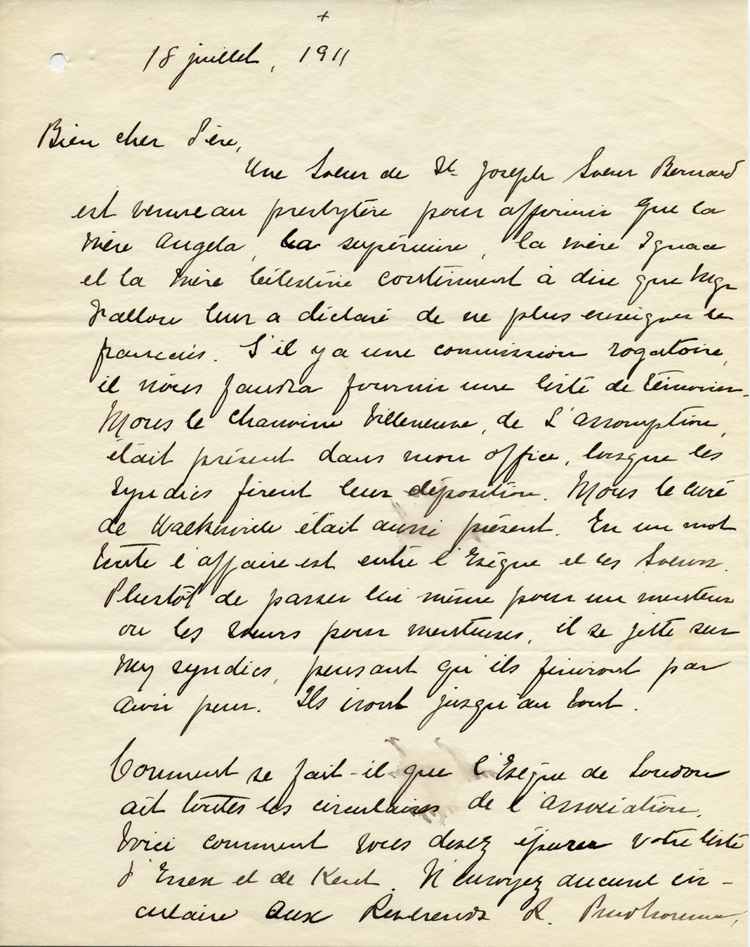 +
18 juillet, 1911
Bien cher Père,
Une Soeur de St Joseph Soeur Bernard
est venue au presbytère pour affirmer que la
mère Angela, la supérieure, la mère Ignace
et la mère Célestine continuent à dire que Mgr
Fallon leur a déclaré de ne plus enseigner le
français. S'il y a une commission rogatoire,
il nous faudra fournir une liste de témoins.
Mons le Chanoine Villeneuve, de L'assomption,
était présent dans mon office, lorsque les
syndics firent leur déposition. Mons le curé
de Walkerville était aussi présent. En un mot
toute l'affaire est entre l'Evêque et les Soeurs.
Plustôt de passer lui même pour un menteur
ou les soeurs pour menteuses, il se jette sur
my syndics, pensant qu'ils finiront par
avoir peur. Ils iront jusqu'au bout.
Comment se fait-il que l'Evêque de London
ait toutes les circulaires de l'association.
Voici comment vous devez épurer votre liste
d'Essex et de Kent. N'envoyez aucune cir-
culaire aux Révérends R. Prudhomme,